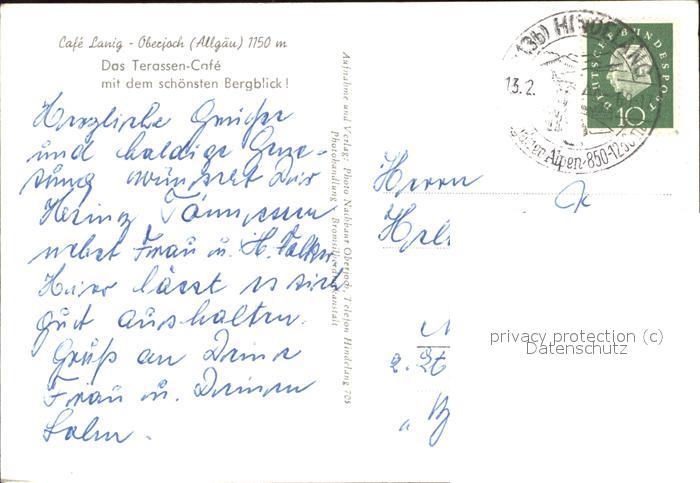 Café Lanig - Oberjoch (Allgäu) 1150 m
Das Terassen-Café
mit dem schönsten Bergblick!
Herzliche Grüße
und baldige Gene-
sung wünscht Dir
Heinz Tönnessen
nebst Frau u. H. Falker
Hier lässt es sich
gut aushalten.
Gruß an Deine
Frau u. Deinen
Sohn.
Aufnahme und Verlag: Photo Nachbaur Oberjoch, Telefon Hindelang 705
Photohandlung
(13b) HINDELANG
13.2.
Alpen·850-1250 m
DEUTSCHE BUNDESPOST
10
Herrn
privacy protection (c)
Datenschutz